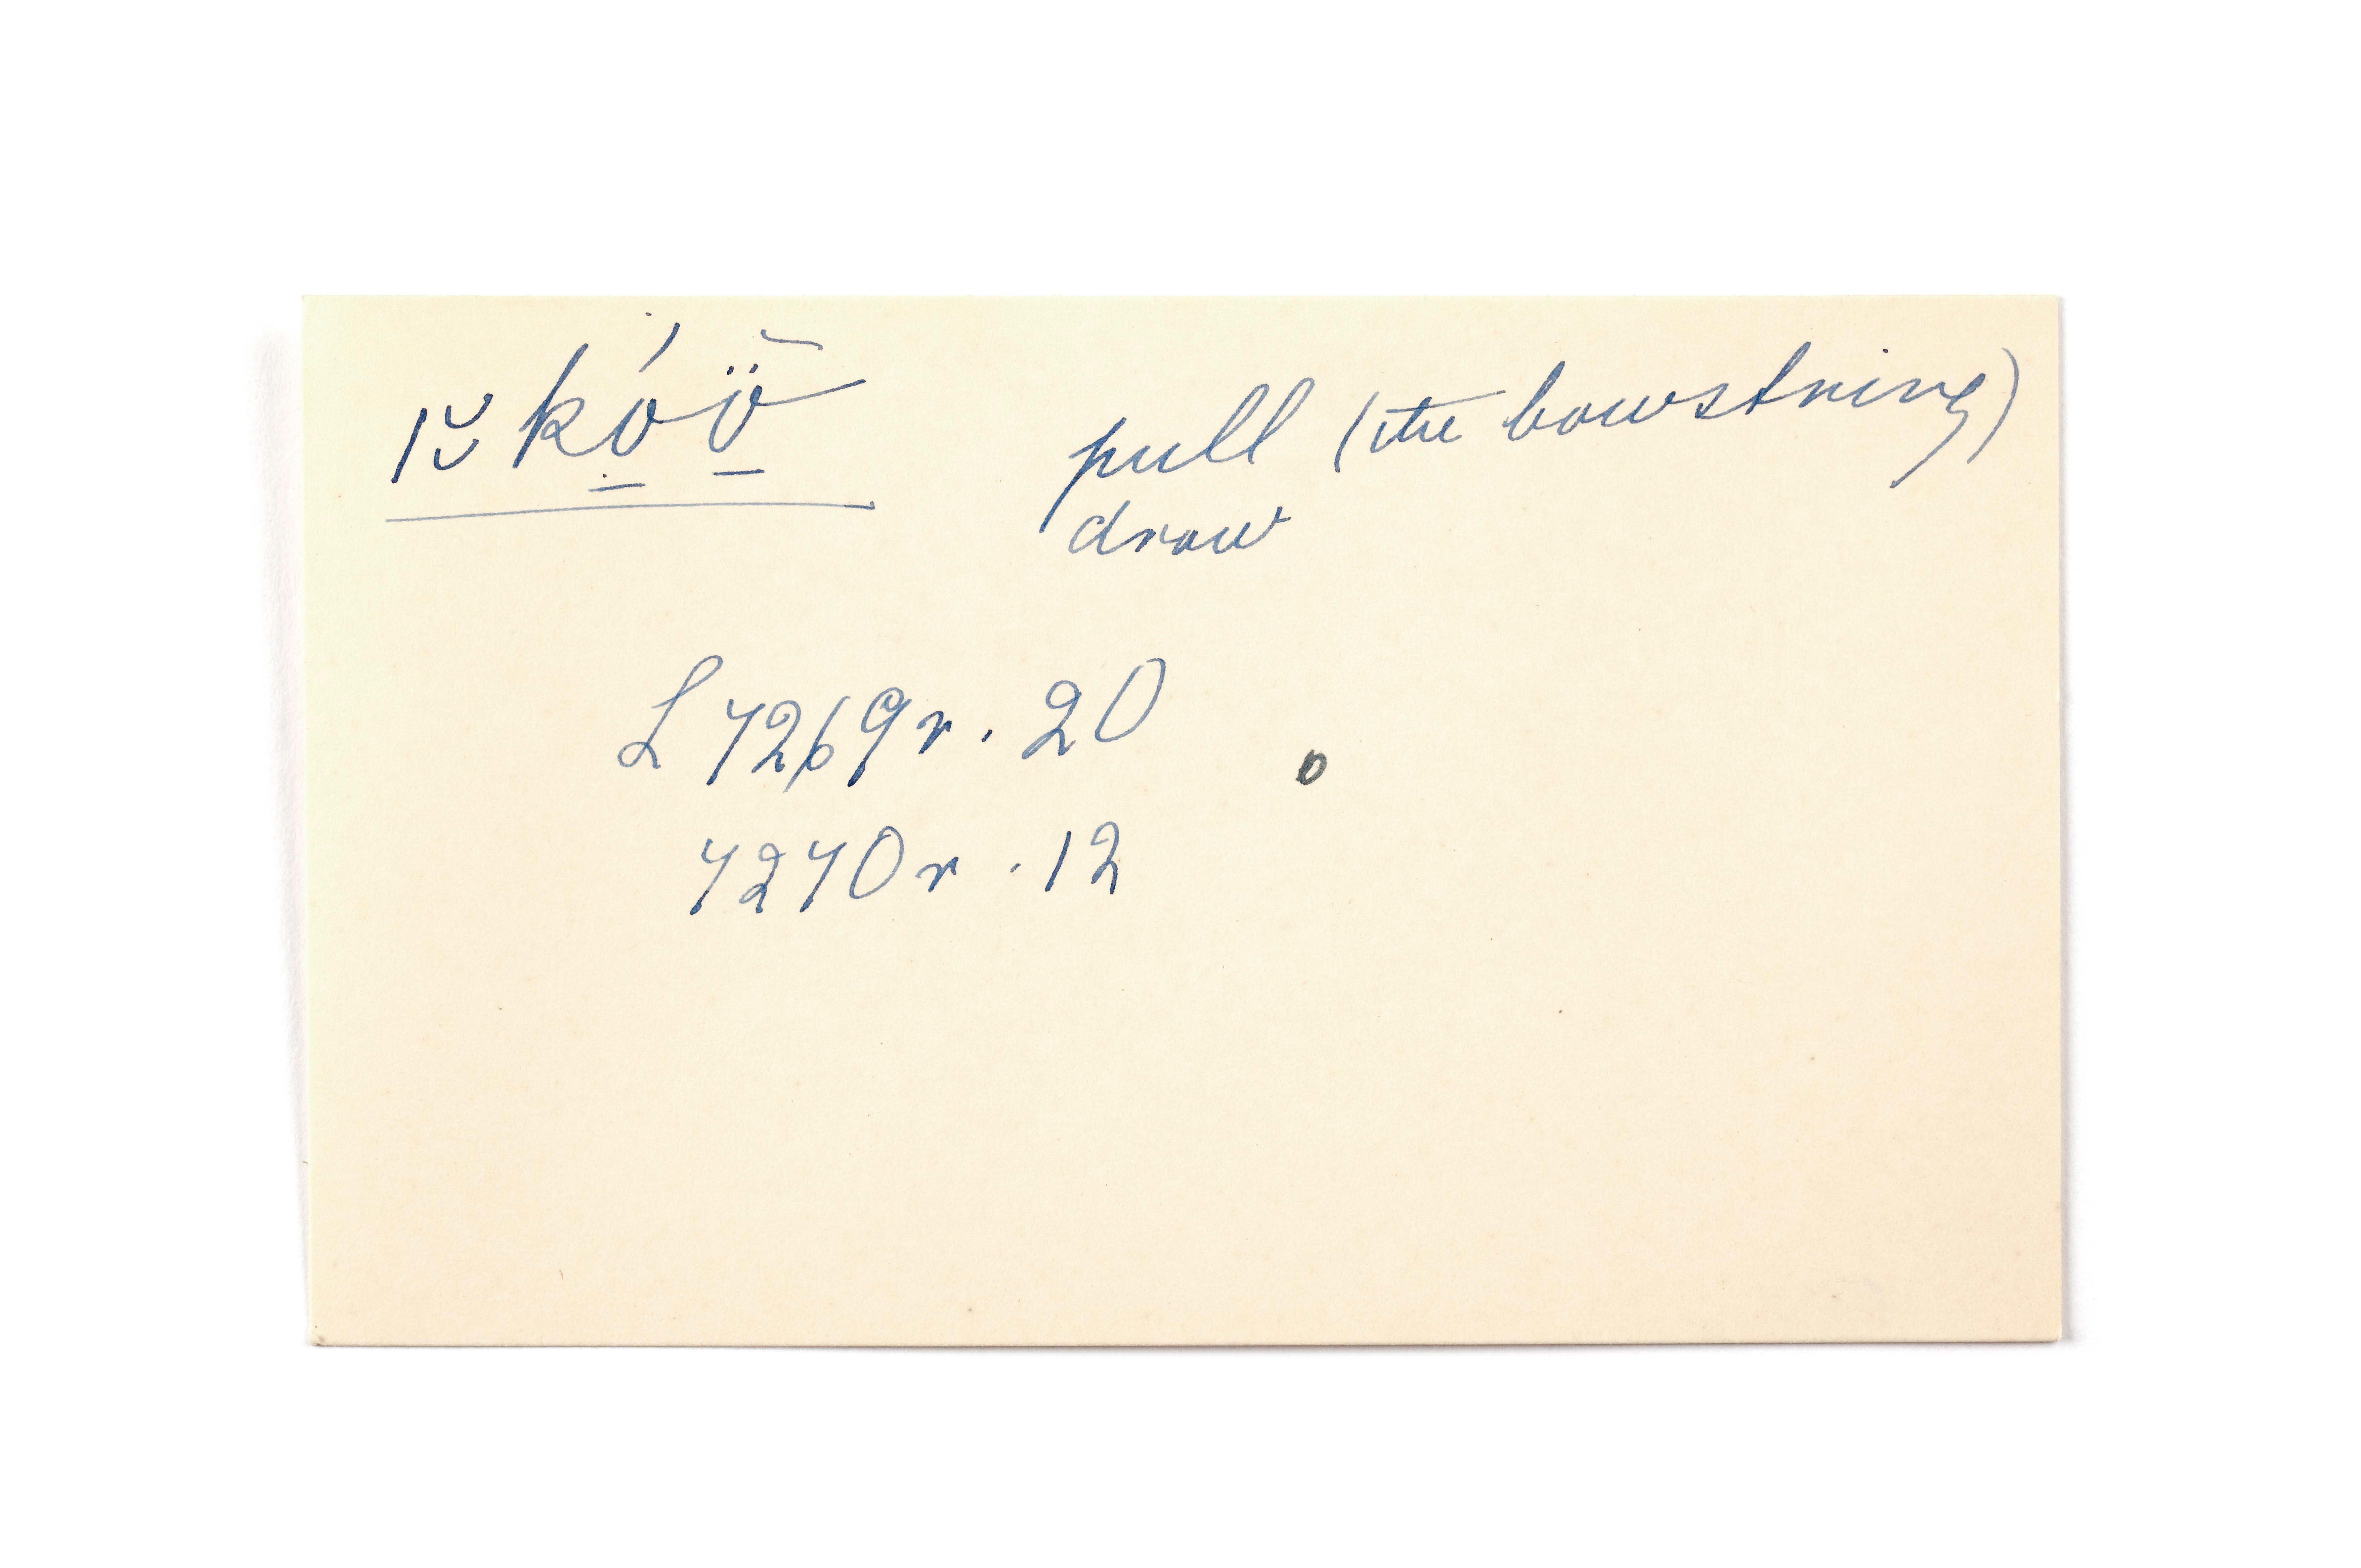 pull (the bowstring)
draw
L 7269r. 20
7270r. 12